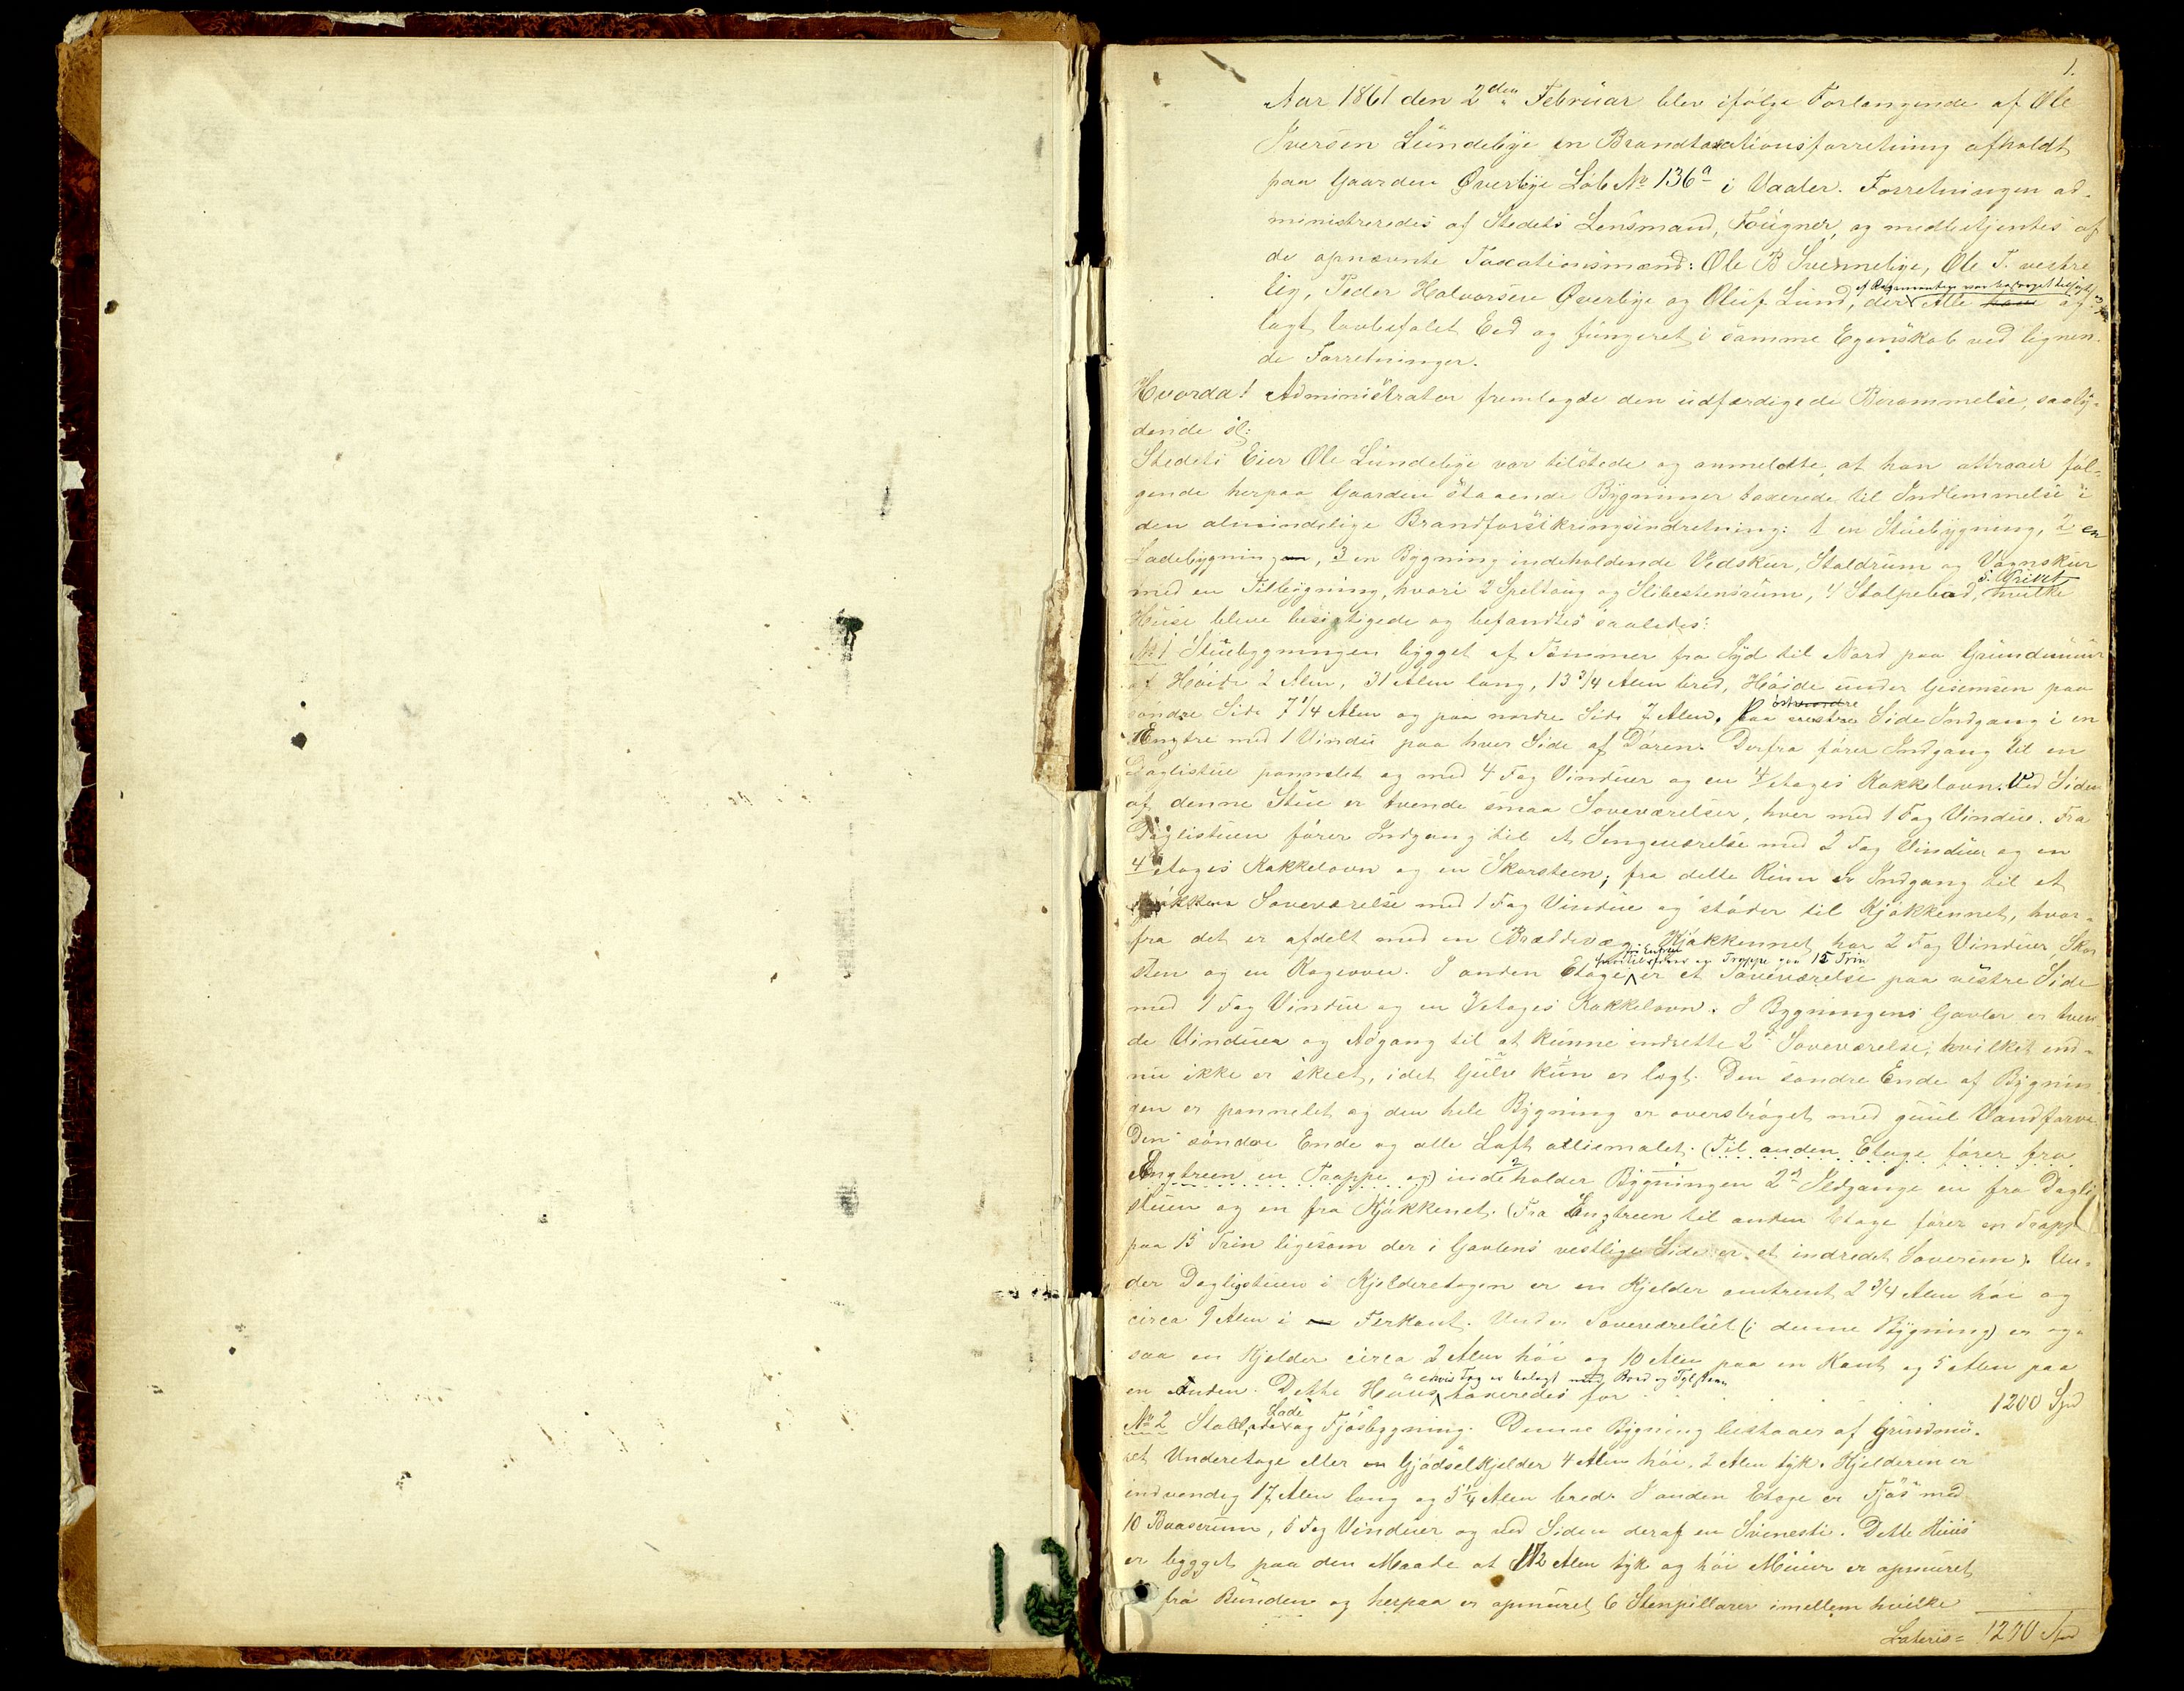 1.
Aar 1861 den 2den Februar blev ifølge Forlangende af Ole
Iversen Lundebye en Brandtaxationsforretning afholdt
paa Gaarden Øverbye Løb No 136a i Vaaler. Forretningen ad-
ministreredes af Stedets Lensmand, Fougner, og medbetjentes af
de opnævnte Taxationsmænd: Ole B Svennebye, Ole T. vestre
bÿ, Peder Halvorsen Øverbye og Oluf Lund, der Alle have af-
lagt lovbefalet Eed og fungeret i samme Egenskab ved lignen-
de Forretninger.
Hvorda! Administrator fremlagde den udfærdigede Berammelse, saaly-
dende sl:
Stedets Eier Ole Lundebye var tilstede og anmeldte, at han attraaer føl-
gende herpaa Gaarden staaende Bygninger taxerede til Indlemmelse i
den almindelige Brandforsikringsindretning: 1 en Stuebygning, 2 en
Ladebygning, 3 en Bygning indeholdende Vedskur, Staldrum og Vognskur
med en Tilbygning, hvori 2 Speltoug og Slibestensrum, 4 Stolpebod, hvilke
Huse bleve besigtigede og befandtes saaledes:
No 1 Stuebygningen bygget af Tømmer fra Syd til Nord paa Grundmuur
af Høide 2 Alen, 31 Alen lang, 13 3/4 Alen bred, Høide under Gesemsen paa
søndre Side 7 1/4 Alen og paa nordre Side 7 Alen. Paa Side Indgang i en
Engtre med 1 Vindu paa hver Side af Døren. Derfra fører Indgang til en
Daglistue pannelet og med 4 Fag Vinduer og en 4 etages Kakkelovn. Ved Siden
af denne Stue er tvende smaa Soveværelser, hver med 1 Fag Vindue. Fra
Daglistuen fører Indgang til et Sengeværelse med 2 Fag Vinduer og en
4 etages Kakkelovn og en Skorsteen; fra dette Rum er Indgang til et
Soveværelse med 1 Fag Vindue og støder til Kjøkkennet, hvor-
fra det er afdelt med en Bræddevæg. Kjøkkennet har 2 Fag Vinduer, Skor
sten og en Kogeovn. I anden Etage er et Soveværelse paa vestre Side
hvortil fører en Trappe paa 15 Trin
med 1 Fag Vindue og en etages Kakkelovn. I Bygningens Gavler er tven-
de Vinduer og Adgang til at kunne indrette 2 Soveværelse, hvilket end-
nu ikke er skeet, idet Gulv kun er lagt. Den søndre Ende af Bygnin
gen er pannelet og den hele Bygning er overstrøget med guul Vandfarve.
Den søndre Ende og alle Loft oliemalet. (Til anden Etage fører fra
Engtreen en Trappe og) indeholder Bygningen 2de Ildgange en fra Dagli
stuen og en fra Kjøkkenet. (Fra Engtreen til anden Etage fører en Trappe
paa 15 Trin ligesom der i Gavlens vestlige Side er et indredet Soverum). Un-
der Daglistuen i Kjelderetagen er en Kjelder omtrent 2 3/4 Alen høi og
circa 9 Alen i Firkant. Under Soveværelset (i denne Bygning) er og-
saa en Kjelder circa 2 Alen høi og 10 Alen paa en Kant og 5 Alen paa
en Anden. Dette Huus taxeredes for 1200 Spd
hvis Tag er belagt med Bord og Tylsteen
No 2 Stald, Lade og Fjøsbygning. Denne Bygning bestaaer af Grundmu-
ret Underetage eller Gjødselkjelder 4 Alen høi, 2 Alen tyk. Kjelderen er
indvendig 17 Alen lang og 5 1/4 Alen bred. I anden Etage er Fjøs med
10 Baaserum, 6 Fag Vinduer og ved Siden deraf en Svinesti. Dette Huus
er bygget paa den Maade at 1 1/2 Alen tyk og høi Muur er opmuret
fra Bunden og herpaa er opmuret 6 Stenpillarer imellem hvilke
Lateris = 1200 Spd